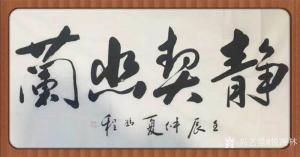 静契幽蘭
壬辰仲夏
程